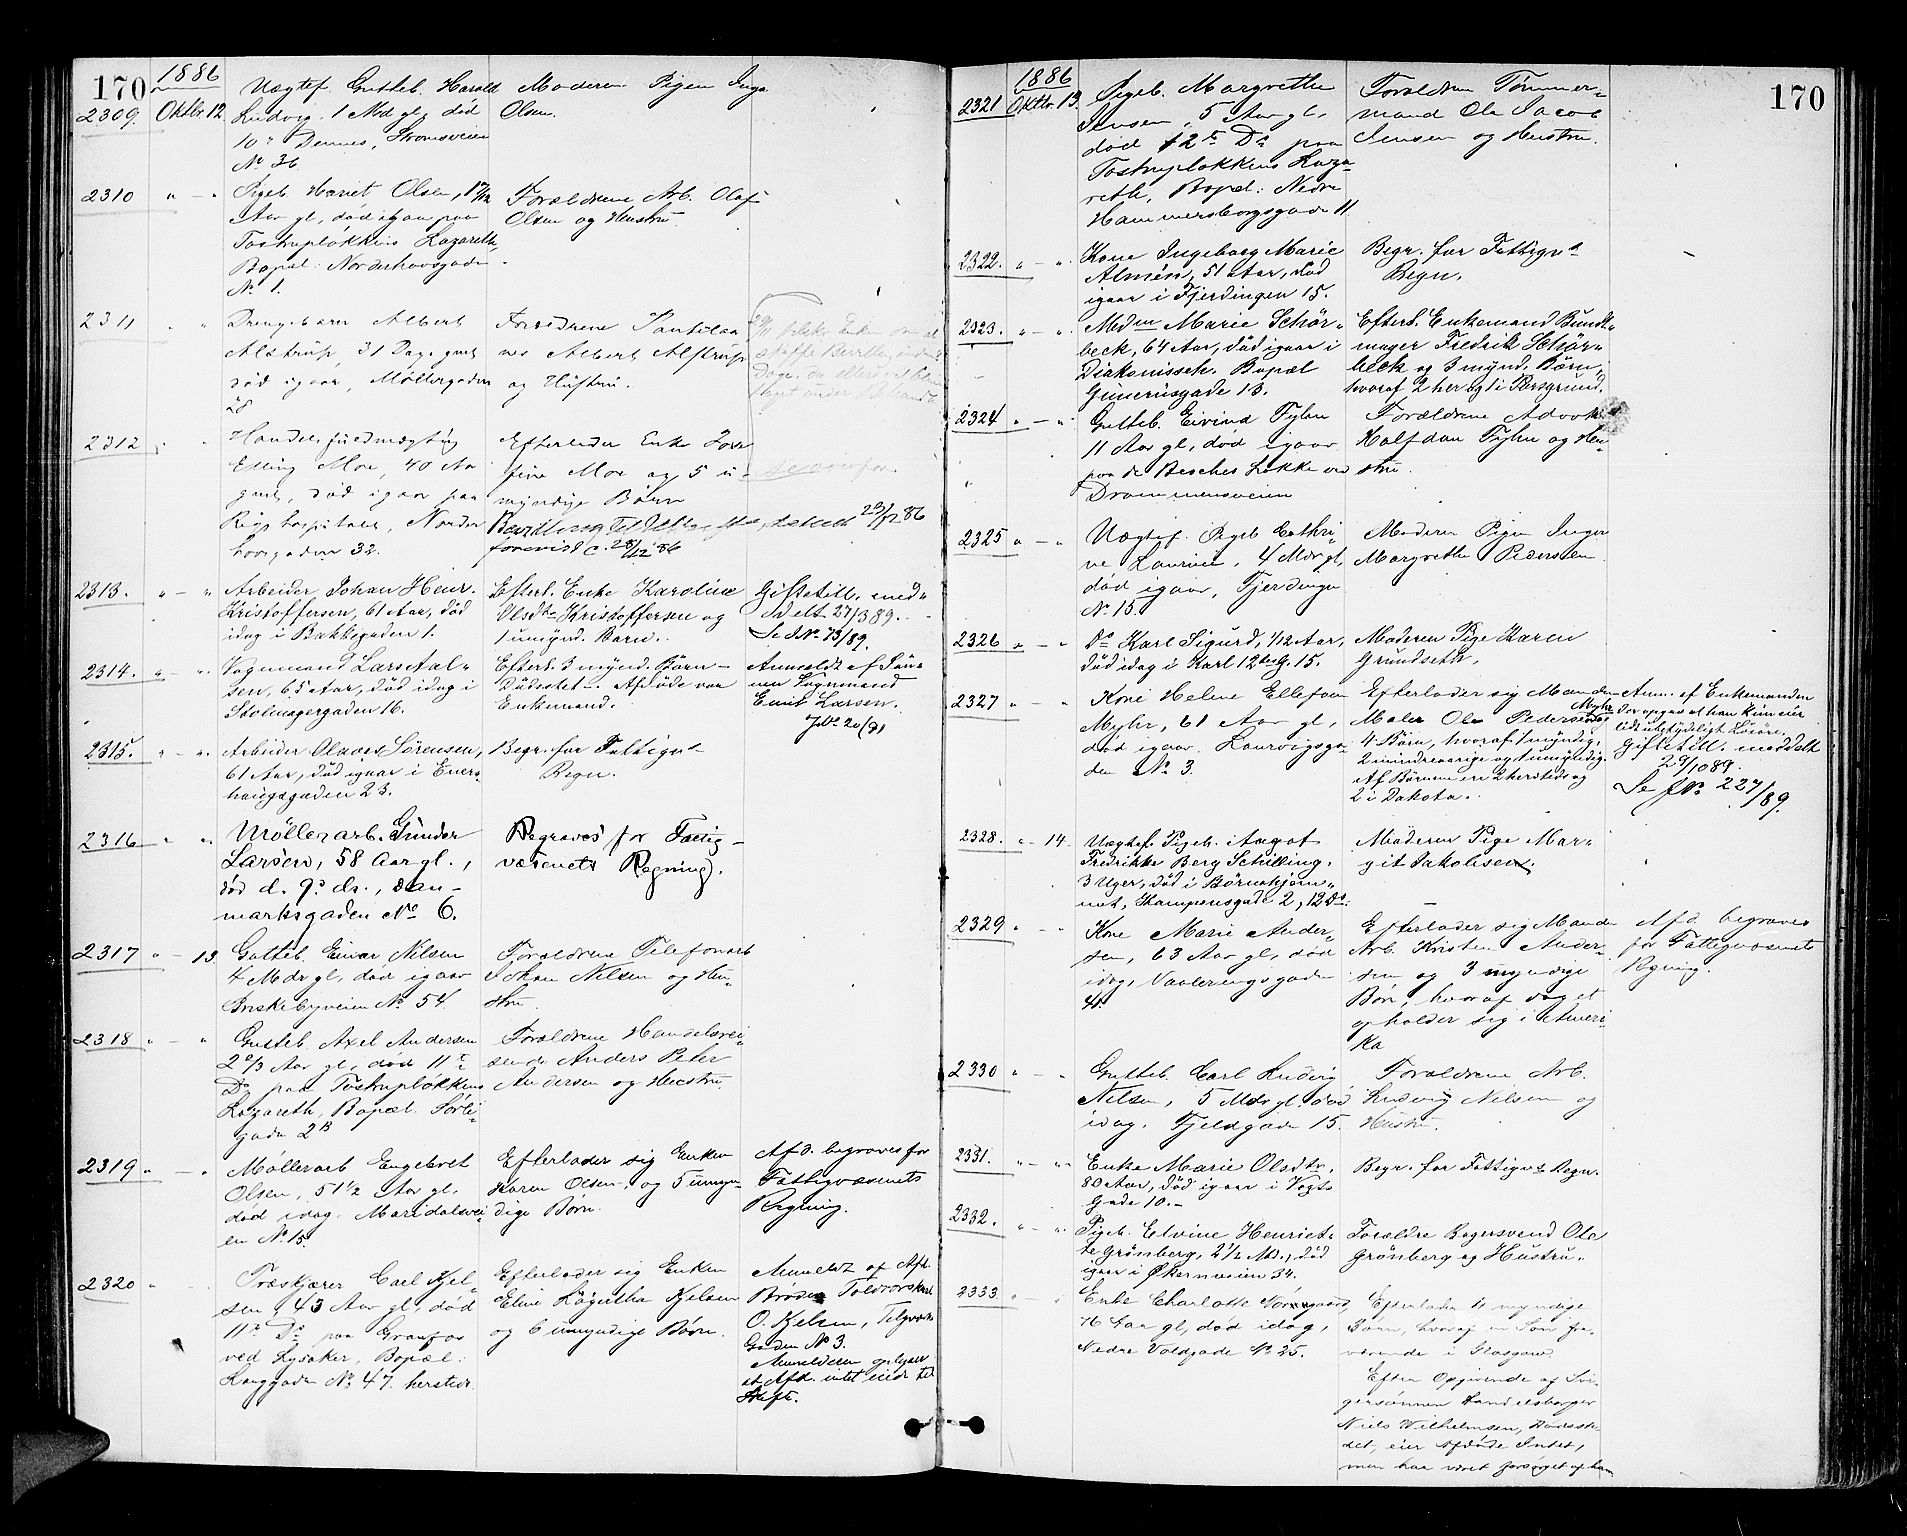 170
1886
2309. Oktbr. 12
Uægtef. Gutteb. Harald
Ludvig. 1 Md gl, død
10de Dennes, Strømsveien
No 36.
Moderen Pigen Inga
Olsen.
2310 " - "
Pigeb. Harriet Olsen,
Aar gl, død igaar paa
Tostrupløkkens Lazareth,
Bopæl: Norderhovsgaden
No 1.
Forældrene Arb. Olaf
Olsen og Hustru
2311
Drengebarn Albert
Alstrup, 31 Dage gml
død igaar, Møllergaden
28
Forældrene
Albert Alstrup
og Hustru.
2312
Handelsfuldmægtig
Elling Moe, 40 Aar
gml, død igaar paa
Rigshospitalet, Norder
hovsgaden 32.
Efterlader Enke
Moe og 5 u-
myndige Børn
Bevilling til
forevist c. 28/12 86
23/12 86
2313. " - "
Arbeider Johan Henr.
Kristoffersen, 61 Aar, død
idag i Bakkegaden 1.
Efterl. Enke Karoline
Olsdtr Kristoffersen og
1 umynd. Barn.
Giftetill. med-
delt 27/3 89.
Se JNo 73/89.
2314. " - "
Vognmand Lars
sen, 65 Aar, død idag i
Stolmagergaden 16.
Efterl. 3 mynd. Børn -
Dødsstet -. Afdøde var
Enkemand.
Anmeldt af Søn-
nen Vognmand
Emil Larsen.
JNo 20/91
2315. " - "
Arbeider Olaves Sørensen,
61 Aar, død igaar i Eners
haugsgaden 23.
Begr. for Fattigvs
Regn.
2316 " "
Møllerarb. Gunder
Larsen, 58 Aar gl.,
død d. 9de ds., Dan-
marksgaden No 6.
Begraves for Fattig-
væsenets Regning.
2317 " - 13.
Gutteb. Einar Nilsen
4 Mdr gl, død igaar
Enskebyveien No 54.
Forældrene Telefonarb
Johan Nilsen og Hu-
stru.
2318 " - "
Gutteb Axel Andersen
2 2/3 Aar gl, død 11te
Ds paa Tostrupløkkens
Lazareth, Bopæl. Sørli-
gaden 2B
Forældrene Handelsrei-
sende Anders Peter
Andersen og Hustru.
2319 " - "
Møllerarb Engebret
Olsen, 51 1/2 Aar gl.
død idag. Maridalsvei
en No 15.
Efterlader sig Enken
Karen Olsen, og 5 umyn-
dige Børn.
Afd. begraves for
Fattigvæsenets
Regning.
2320 "
Træskjærer Carl Kjel-
sen, 43 Aar gl, død
11te Ds paa Granfos
ved Lysaker, Bopæl:
Langgaden No 47. herstds.
Efterlader sig Enken
Eline Kjelsen
og 6 umyndige Børn.
Anmeldt af Afd.
Broder
O. Kjelsen,
Gaden No 3.
Anmelderen oplyser
at Afd. intet eiede til
Skifte.
170
1886
2321 Oktbr. 13.
Pigeb. Margrethe
Jensen, 5 Aar gl,
død 12te Ds paa
Tostrupløkkens Laza-
reth, Bopæl: Nedre
Hammersborgsgade 11
Forældrene Tømmer-
mand Ole Jacob
Jensen og Hustru.
2322. " - "
Kone Ingeborg Marie
Almén, 51 Aar, død
igaar i Fjerdingen 15.
Begr. for Fattigvs
Regn.
2323. " - "
Madm Marie Schør-
beck, 64 Aar, død igaar i
Diakonisseh. Bopæl
Gunerusgade 13.
Efterl. Enkemand Bundt-
mager Fredrik Schør-
beck og 3 mynd. Børn,
hvoraf 2 her og 1 i Porsgrund.
2324 " - "
Gutteb. Eivind Fylen
11 Aar gl, død igaar
paa de Besches Løkke ved
Drammensveien
Forældrene Advok
Halfdan Fylen og Hu-
stru.
2325 " - "
Uægtef. Pigeb Cathri-
ne Laurine, 4 Mdr gl,
død igaar, Fjerdingen
No 15.
Moderen Pigen Inger
Margrethe Pedersen
2326 " - "
Do Karl Sigurd, 1/12 Aar,
død idag i Karl 12tes G. 15.
Moderen Pige Karen
Grundseth.
2327 " "
Kone Helene Ellefsen
Myhr, 61 Aar gl,
død igaar. Laurvigsga-
den No 3.
Efterlader sig Manden
Maler Ole Pedersen Myhr og
4 Børn, hvoraf 1 myndig,
2 mindreaarige og 1 umyndig.
Af Børnene ere 2 hersteds og
2 i Dakota.
Anm. af Enkemanden
der opgav at han kun eier
lidt ubetydeligt Løsøre,
Giftetill. meddelt
29/10 89.
Se JNo 227/89.
2328. " 14.
Uægtef. Pigeb. Aagot
Fredrikke Berg Schilling.
3 Uger, død i Børnehjem-
met, Kampensgade 2, 12 ds.
Moderen Pige Mar-
git Jakobsen
2329 " "
Kone Marie Ander-
sen, 63 Aar gl, død
idag, Vaalerengsgaden
41.
Efterlader sig Mand
Arb. Kristen Ander-
sen og 3 myndige
Børn, hvoraf dog et
opholder sig i Ameri-
ka
Afd. begraves
for Fattigvæsenets
Regning.
2330 " - "
Gutteb. Carl Ludvig
Nilsen, 5 Mdr gl. død
idag. Fjeldgade 15.
Forældrene Arb.
Ludvig Nilsen og
Hustru.
2331. " - "
Enke Marie Olsdtr.
80 Aar, død igaar i Vogts
Gade 10.-
Begr. for Fattigvs Regn.
2332. " - "
Pigeb. Elvine Henriet-
te Grønberg, 2 1/2 Md., død
igaar i Økernveien 34.
Forældre Bagersvend Ole
Grønberg og Hustru
2333 " -
Enke Charlotte Nørregaard,
76 Aar gl, død idag,
Nedre Voldgade No 25.
Efterlader 4 myndige
Børn, hvoraf en Søn fra-
værende i Glasgow
Efter Opgivende af Svi-
gersønnen Handelsborger
Niels Wilhelmsen, Dødsste-
det, eier Afdøde Intet,
men har været forsørget af ham